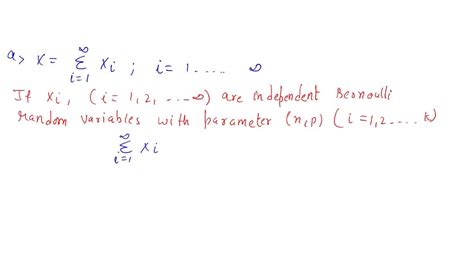 a> X = ∞ Σ i=1 Xi ; i = 1 ..... ∞
If Xi, (i = 1, 2, ... ∞) are independent Bernoulli
random variables with parameter (n, p) (i = 1, 2 .... k)
∞ Σ i=1 Xi